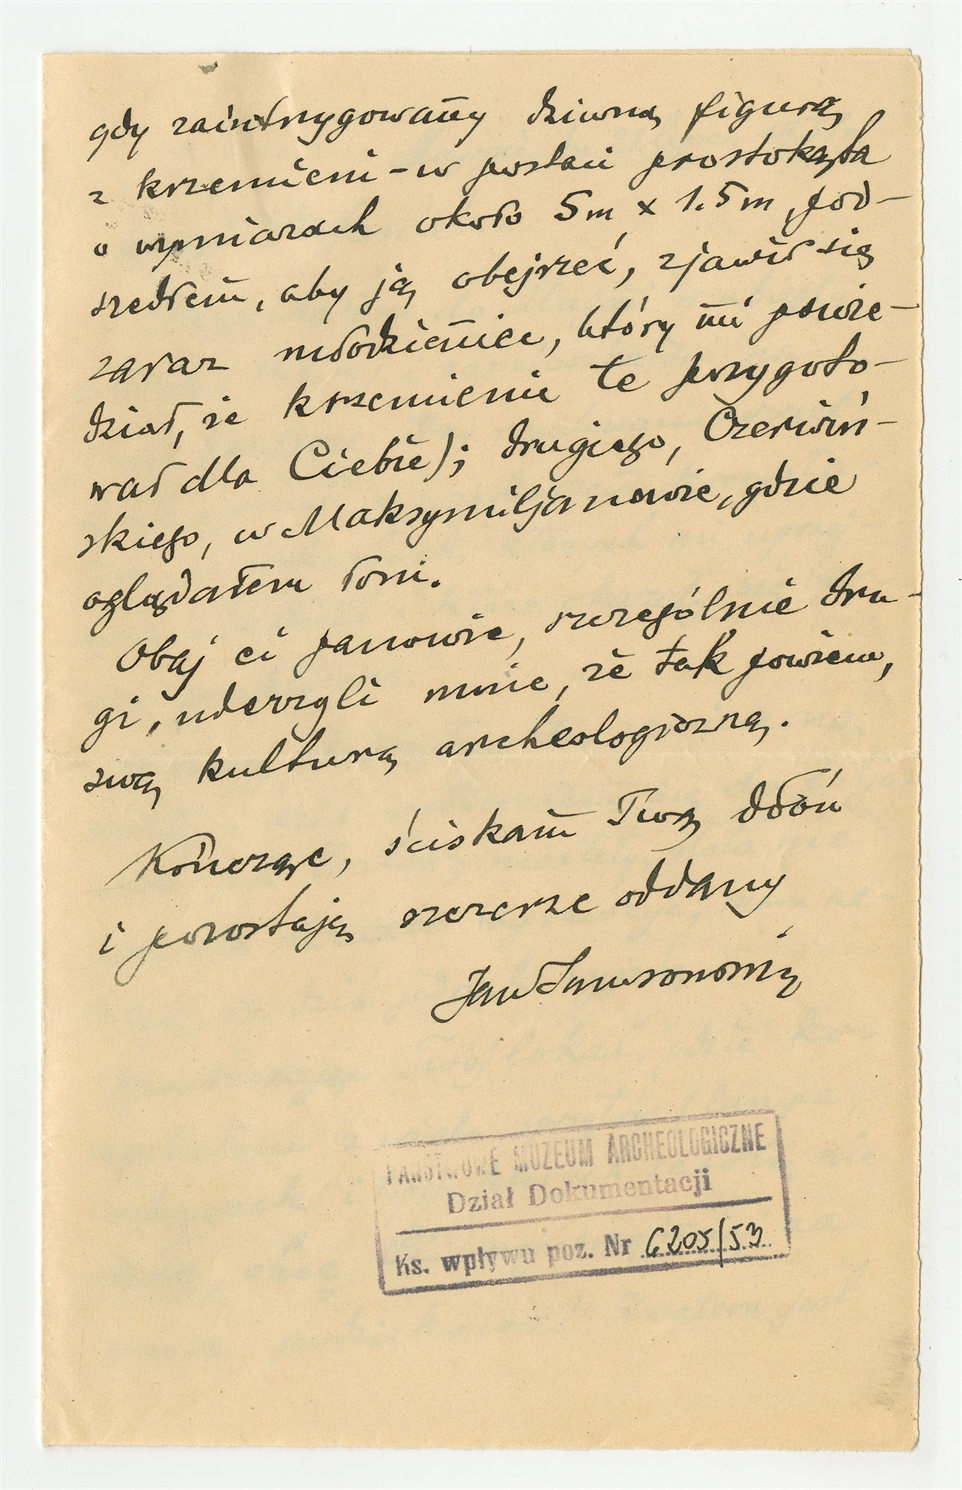 gdy zaintrygowany dziwną figurą
z krzemieni - w postaci prostokąta
o wymiarach około 5m x 1.5m, pod-
szedłem, aby ją obejrzeć, zjawił się
zaraz młodzieniec, który mi powie-
dział, że krzemienie te przygoto-
wał dla Ciebie); drugiego, Czerwiń-
skiego, w Maksymiljanowie, gdzie
oglądałem
Obaj ci panowie, szczególnie dru-
gi, uderzyli mnie, że tak powiem,
swą kulturą archeologiczną.
Kończąc, ściskam Twą dłoń
i pozostaję szczerze oddany
Jan
PAŃSTWOWE MUZEUM ARCHEOLOGICZNE
Dział Dokumentacji
Ks. wpływu poz. Nr 6205/53